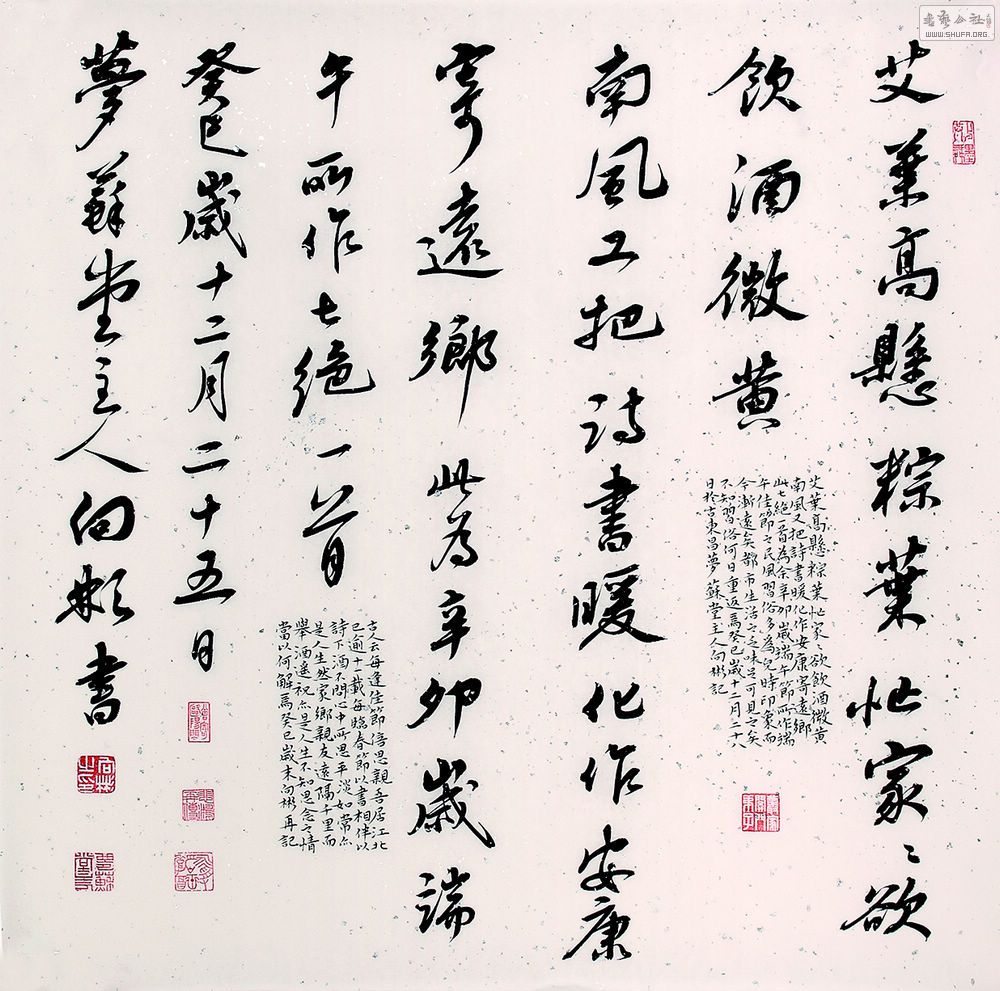 艾葉高懸粽葉忙家〻欲
飲酒微黄
艾葉高懸粽葉忙家〻欲飲酒微黄
南風又把詩書暖化作安康寄遠鄉
此七絕一首為余辛卯歲端午節所作端
午佳節之民風習俗多為兒時印象而
今漸遠矣都市生活之乏味足可見之矣
不知習俗何日重返焉癸巳歲十二月二十八
日於古東昌夢蘇堂主人向彬記
南風又把詩書暖化作安康
寄遠鄉此為辛卯歲端
午所作七絕一首
古人云每逢佳節倍思親吾居江北
已逾十一載每臨春節以書相伴以
詩下酒不問心中所思平淡如常亦
是人生然家鄉親友遠隔千里而
舉酒遙祝亦是人生不知思念之情
當以何解焉癸巳歲末向彬再記
癸巳歲十二月二十五日
夢蘇堂主人向彬書
書藝公社
WWW.SHUFA.ORG